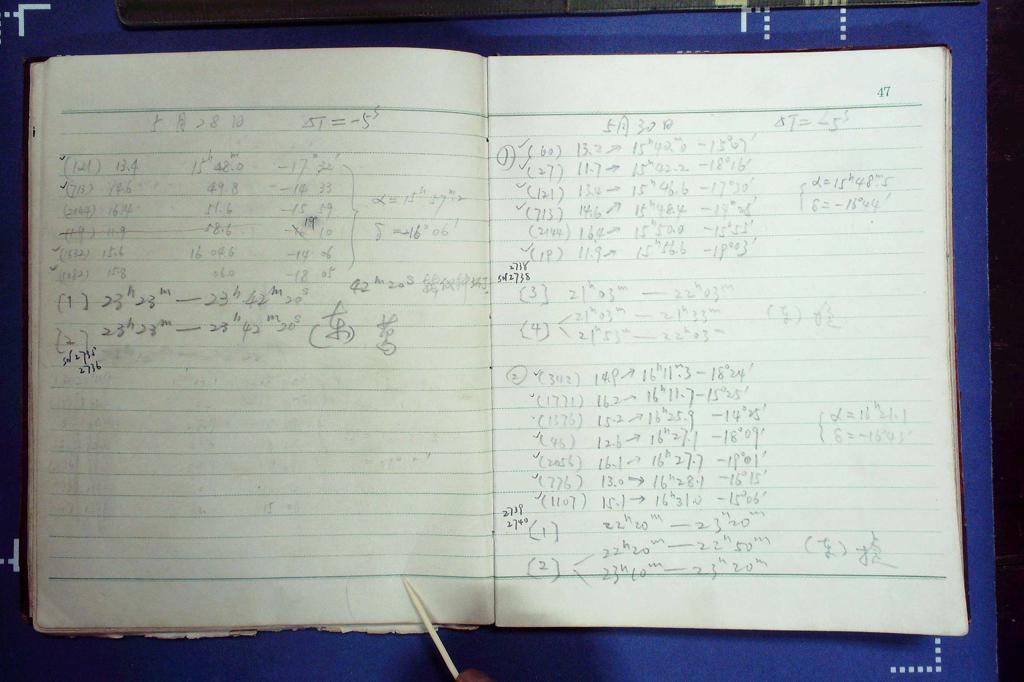 5月28日 ΔT=-5ˢ
✓(121) 13.4 15ʰ48.ᵐ0 -17°32′
✓(713) 14.6 49.8 -14 33
(2144) 16.4 51.6 -15 59
(119) 11.9 58.6 19 10
✓(1632) 15.6 16 04.6 -14 06
15.8 06.0 -18 05
α=15ʰ57ᵐ.2
δ=-16°06′
[1] 23ʰ23ᵐ — 23ʰ42ᵐ20ˢ 42ᵐ20ˢ
[2] 23ʰ23ᵐ — 23ʰ42ᵐ20ˢ (东)
2735
2736
47
5月30日 ΔT=-5ˢ
① ✓(60) 13.2→ 15ʰ42.ᵐ0 -15°07′
✓(27) 11.7→ 15ʰ42.2 -18°16′
✓(121) 13.4→ 15ʰ46.6 -17°30′
✓(713) 14.6→ 15ʰ48.4 -14°25′
(2144) 16.4→ 15ʰ50.0 -15°55′
✓(19) 11.9→ 15ʰ56.6 -19°03′
{α=15ʰ48ᵐ.5
δ=-16°44′
2738
2738
[3] 21ʰ03ᵐ — 22ʰ03ᵐ
[4] < 21ʰ03ᵐ — 21ʰ33ᵐ
21ʰ53ᵐ — 22ʰ03ᵐ
② ✓(342) 14.9→ 16ʰ11ᵐ.3 -18°24′
✓(1771) 16.2→ 16ʰ11.7 -15°25′
(1376) 15.2→ 16ʰ25.9 -14°25′
✓(46) 12.6→ 16ʰ27.1 -18°09′
✓(2056) 16.1→ 16ʰ27.7 -19°01′
✓(776) 13.0→ 16ʰ28.1 -16°15′
✓(1107) 15.1→ 16ʰ31.0 -15°06′
{α=16ʰ21.1
δ=-16°43′
2739
2740
[1] 22ʰ20ᵐ — 23ʰ20ᵐ
[2] < 22ʰ20ᵐ — 22ʰ50ᵐ
23ʰ10ᵐ — 23ʰ20ᵐ (东)